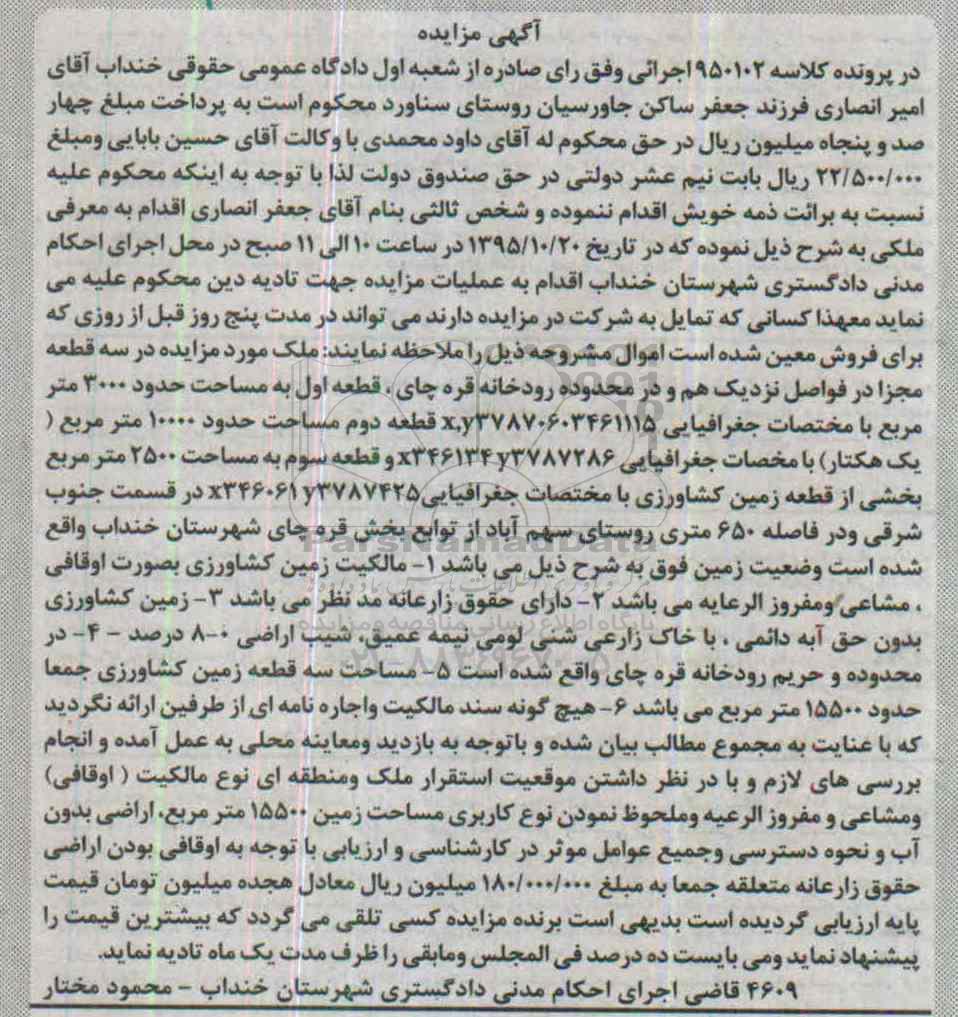 آگهی مزایده
در پرونده کلاسه ۹۵۰۱۰۲ اجرائی وفق رای صادره از شعبه اول دادگاه عمومی حقوقی خنداب آقای
امیر انصاری فرزند جعفر ساکن جاورسیان روستای سناورد محکوم است به پرداخت مبلغ چهار
صد و پنجاه میلیون ریال در حق محکوم له آقای داود محمدی با وکالت آقای حسین بابایی ومبلغ
۲۲/۵۰۰/۰۰۰ ریال بابت نیم عشر دولتی در حق صندوق دولت لذا با توجه به اینکه محکوم علیه
نسبت به برائت ذمه خویش اقدام ننموده و شخص ثالثی بنام آقای جعفر انصاری اقدام به معرفی
ملکی به شرح ذیل نموده که در تاریخ ۱۳۹۵/۱۰/۲۰ در ساعت ۱۰ الی ۱۱ صبح در محل اجرای احکام
مدنی دادگستری شهرستان خنداب اقدام به عملیات مزایده جهت تادیه دین محکوم علیه می
نماید معهذا کسانی که تمایل به شرکت در مزایده دارند می تواند در مدت پنج روز قبل از روزی که
برای فروش معین شده است اموال مشروحه ذیل را ملاحظه نمایند: ملک مورد مزایده در سه قطعه
مجزا در فواصل نزدیک هم و در محدوده رودخانه قره چای ، قطعه اول به مساحت حدود ۳۰۰۰ متر
مربع با مختصات جغرافیایی x,y۳۷۸۷۰۶۰۳۴۶۱۱۱۵ قطعه دوم مساحت حدود ۱۰۰۰۰ متر مربع (
یک هکتار) با مخصات جغرافیایی x۳۴۶۱۳۴ y۳۷۸۷۲۸۶ و قطعه سوم به مساحت ۲۵۰۰ متر مربع
بخشی از قطعه زمین کشاورزی با مختصات جغرافیایی x۳۴۶۰۶۱ y۳۷۸۷۴۲۵ در قسمت جنوب
شرقی ودر فاصله ۶۵۰ متری روستای سهم آباد از توابع بخش قره چای شهرستان خنداب واقع
شده است وضعیت زمین فوق به شرح ذیل می باشد ۱- مالکیت زمین کشاورزی بصورت اوقافی
، مشاعی ومفروز الرعایه می باشد ۲- دارای حقوق زارعانه مد نظر می باشد ۳- زمین کشاورزی
بدون حق آبه دائمی ، با خاک زارعی شنی لومی نیمه عمیق، شیب اراضی ۰-۸ درصد - ۴- در
محدوده و حریم رودخانه قره چای واقع شده است ۵- مساحت سه قطعه زمین کشاورزی جمعا
حدود ۱۵۵۰۰ متر مربع می باشد ۶- هیچ گونه سند مالکیت واجاره نامه ای از طرفین ارائه نگردید
که با عنایت به مجموع مطالب بیان شده و باتوجه به بازدید ومعاینه محلی به عمل آمده و انجام
بررسی های لازم و با در نظر داشتن موقعیت استقرار ملک ومنطقه ای نوع مالکیت ( اوقافی)
ومشاعی و مفروز الرعیه وملحوظ نمودن نوع کاربری مساحت زمین ۱۵۵۰۰ متر مربع، اراضی بدون
آب و نحوه دسترسی وجمیع عوامل موثر در کارشناسی و ارزیابی با توجه به اوقافی بودن اراضی
حقوق زارعانه متعلقه جمعا به مبلغ ۱۸۰/۰۰۰/۰۰۰ میلیون ریال معادل هجده میلیون تومان قیمت
پایه ارزیابی گردیده است بدیهی است برنده مزایده کسی تلقی می گردد که بیشترین قیمت را
پیشنهاد نماید ومی بایست ده درصد فی المجلس ومابقی را ظرف مدت یک ماه تادیه نماید.
۴۶۰۹ قاضی اجرای احکام مدنی دادگستری شهرستان خنداب - محمود مختار
ParsNamadData
پایگاه اطلاع رسانی مناقصه و مزایده